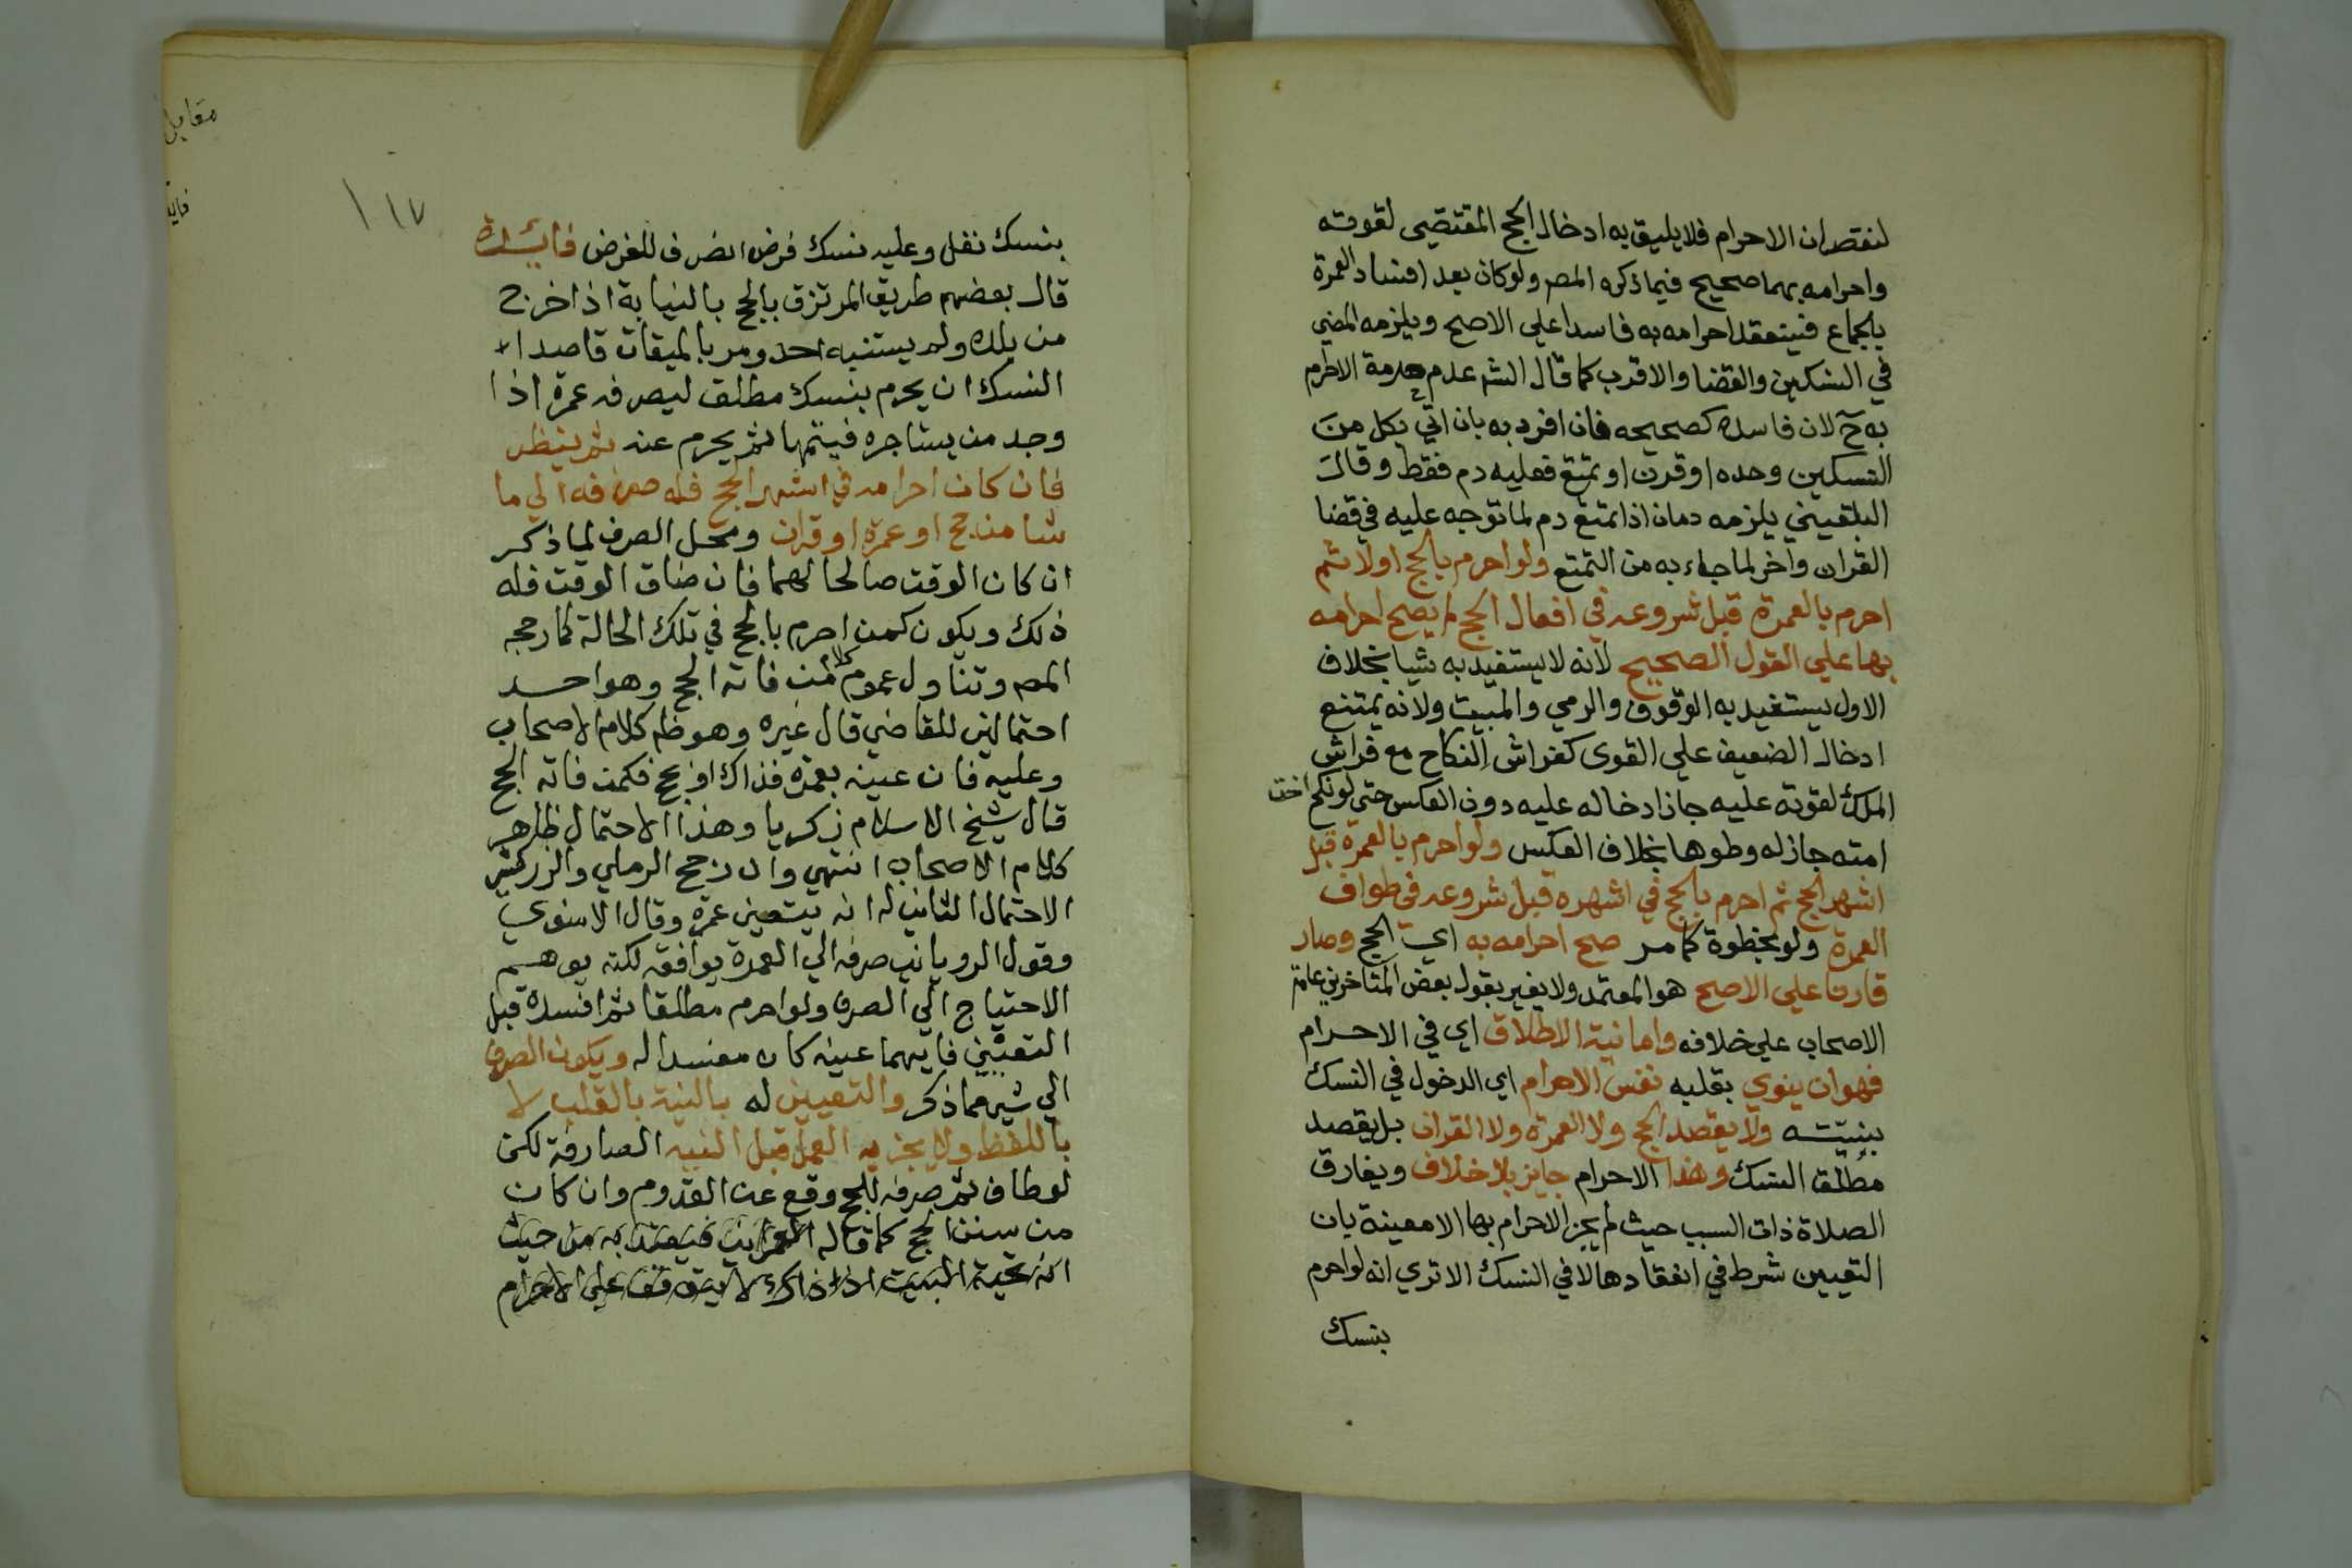 لنقصان الاحرام فلا يليق به ادخال الحج المقتضي لقوته
واحرامه بهما صحيح فيما ذكره المص ولو كان بعد افساد العمرة
بالجماع فينعقد احرامه به فاسدا علي الاصح ويلزمه المضي
في النسكين والقضا والاقرب كما قال الشم عدم حرمة الاحرام
به ح لان فاسده كصحيحه فان افرد به بان اتي بكل من
النسكين وحده او قرن او تمتع فعليه دم فقط وقال
البلقيني يلزمه دمان اذا تمتع دم لما توجه عليه في قضا
القران واخر لما جاء به من التمتع ولو احرم بالحج اولا ثم
احرم بالعمرة قبل شروعه في افعال الحج لم يصح احرامه
بها علي القول الصحيح لانه لا يستفيد به شيا بخلاف
الاول يستفيد به الوقوف والرمي والمبيت ولانه يمتنع
ادخال الضعيف علي القوى كفراش النكاح مع فراش
الملك لقوته عليه جاز ادخاله عليه دون العكس حتي لو نكح اخت
امته جاز له وطوها بخلاف العكس ولو احرم بالعمرة قبل
اشهر الحج ثم احرم بالحج في اشهره قبل شروعه في طواف
العمرة ولو بخطوة كما مر صح احرامه به اي الحج وصار
قارنا علي الاصح هو المعتمد ولا يغير بقول بعض المتاخرين عامة
الاصحاب علي خلافه واما نية الاطلاق اي في الاحرام
فهو ان ينوي بقلبه نفس الاحرام اي الدخول في النسك
بنيته ولا يقصد الحج ولا العمرة ولا القران بل يقصد
مطلق النسك وهذا الاحرام جايز بلا خلاف ويفارق
الصلاة ذات السبب حيث لم يجز الاحرام بها الا معينة بان
التعيين شرط في انعقادها لا في النسك الا تري انه لو احرم
بنسك
١١٧
مقابل
بنسك نفل وعليه نسك فرض انصرف للفرض فايدة
قال بعضهم طريق المرتزق بالحج بالنيابة اذا خرج
من بلده ولم يستنبه احد ومر بالميقات قاصدا
النسك ان يحرم بنسك مطلق ليصرفه عمرة اذا
وجد من يستاجره فيتمها ثم يحرم عنه ثم ينظر
فان كان احرامه في اشهر الحج فله صرفه الي ما
شا من حج او عمرة او قران ومحل الصرف لما ذكر
ان كان الوقت صالحا لهما فان ضاق الوقت فله
ذلك ويكون كمن احرم بالحج في تلك الحالة كما رجحه
المص وتناول عموم كلامه من فاته الحج وهو احد
احتمالين للقاضي قال غيره وهو ظاهر كلام الاصحاب
وعليه فان عينه بعمرة فذاك او بحج فكمن فاته الحج
قال شيخ الاسلام زكريا وهذا الاحتمال ظاهر
كلام الاصحاب انتهي وان رجح الرملي والزركشي
الاحتمال الثاني له انه يتعين عمرة وقال الاسنوي
وقول الروياني صرفه الي العمرة يوافقه لكنه يوهم
الاحتياج الي الصرف ولو احرم مطلقا ثم افسده قبل
التعيين فايهما عينه كان مفسدا له ويكون الصرف
الي شي مما ذكر والتعيين له بالنية بالقلب لا
باللفظ ولا يجزيه العمل قبل النية الصارفة لكن
لو طاف ثم صرفه للحج وقع عن القدوم وان كان
من سنن الحج كما قاله العمراني فيعتد به من حيث
انه تحية البيت اذا ذاك لا يتوقف علي الاحرام